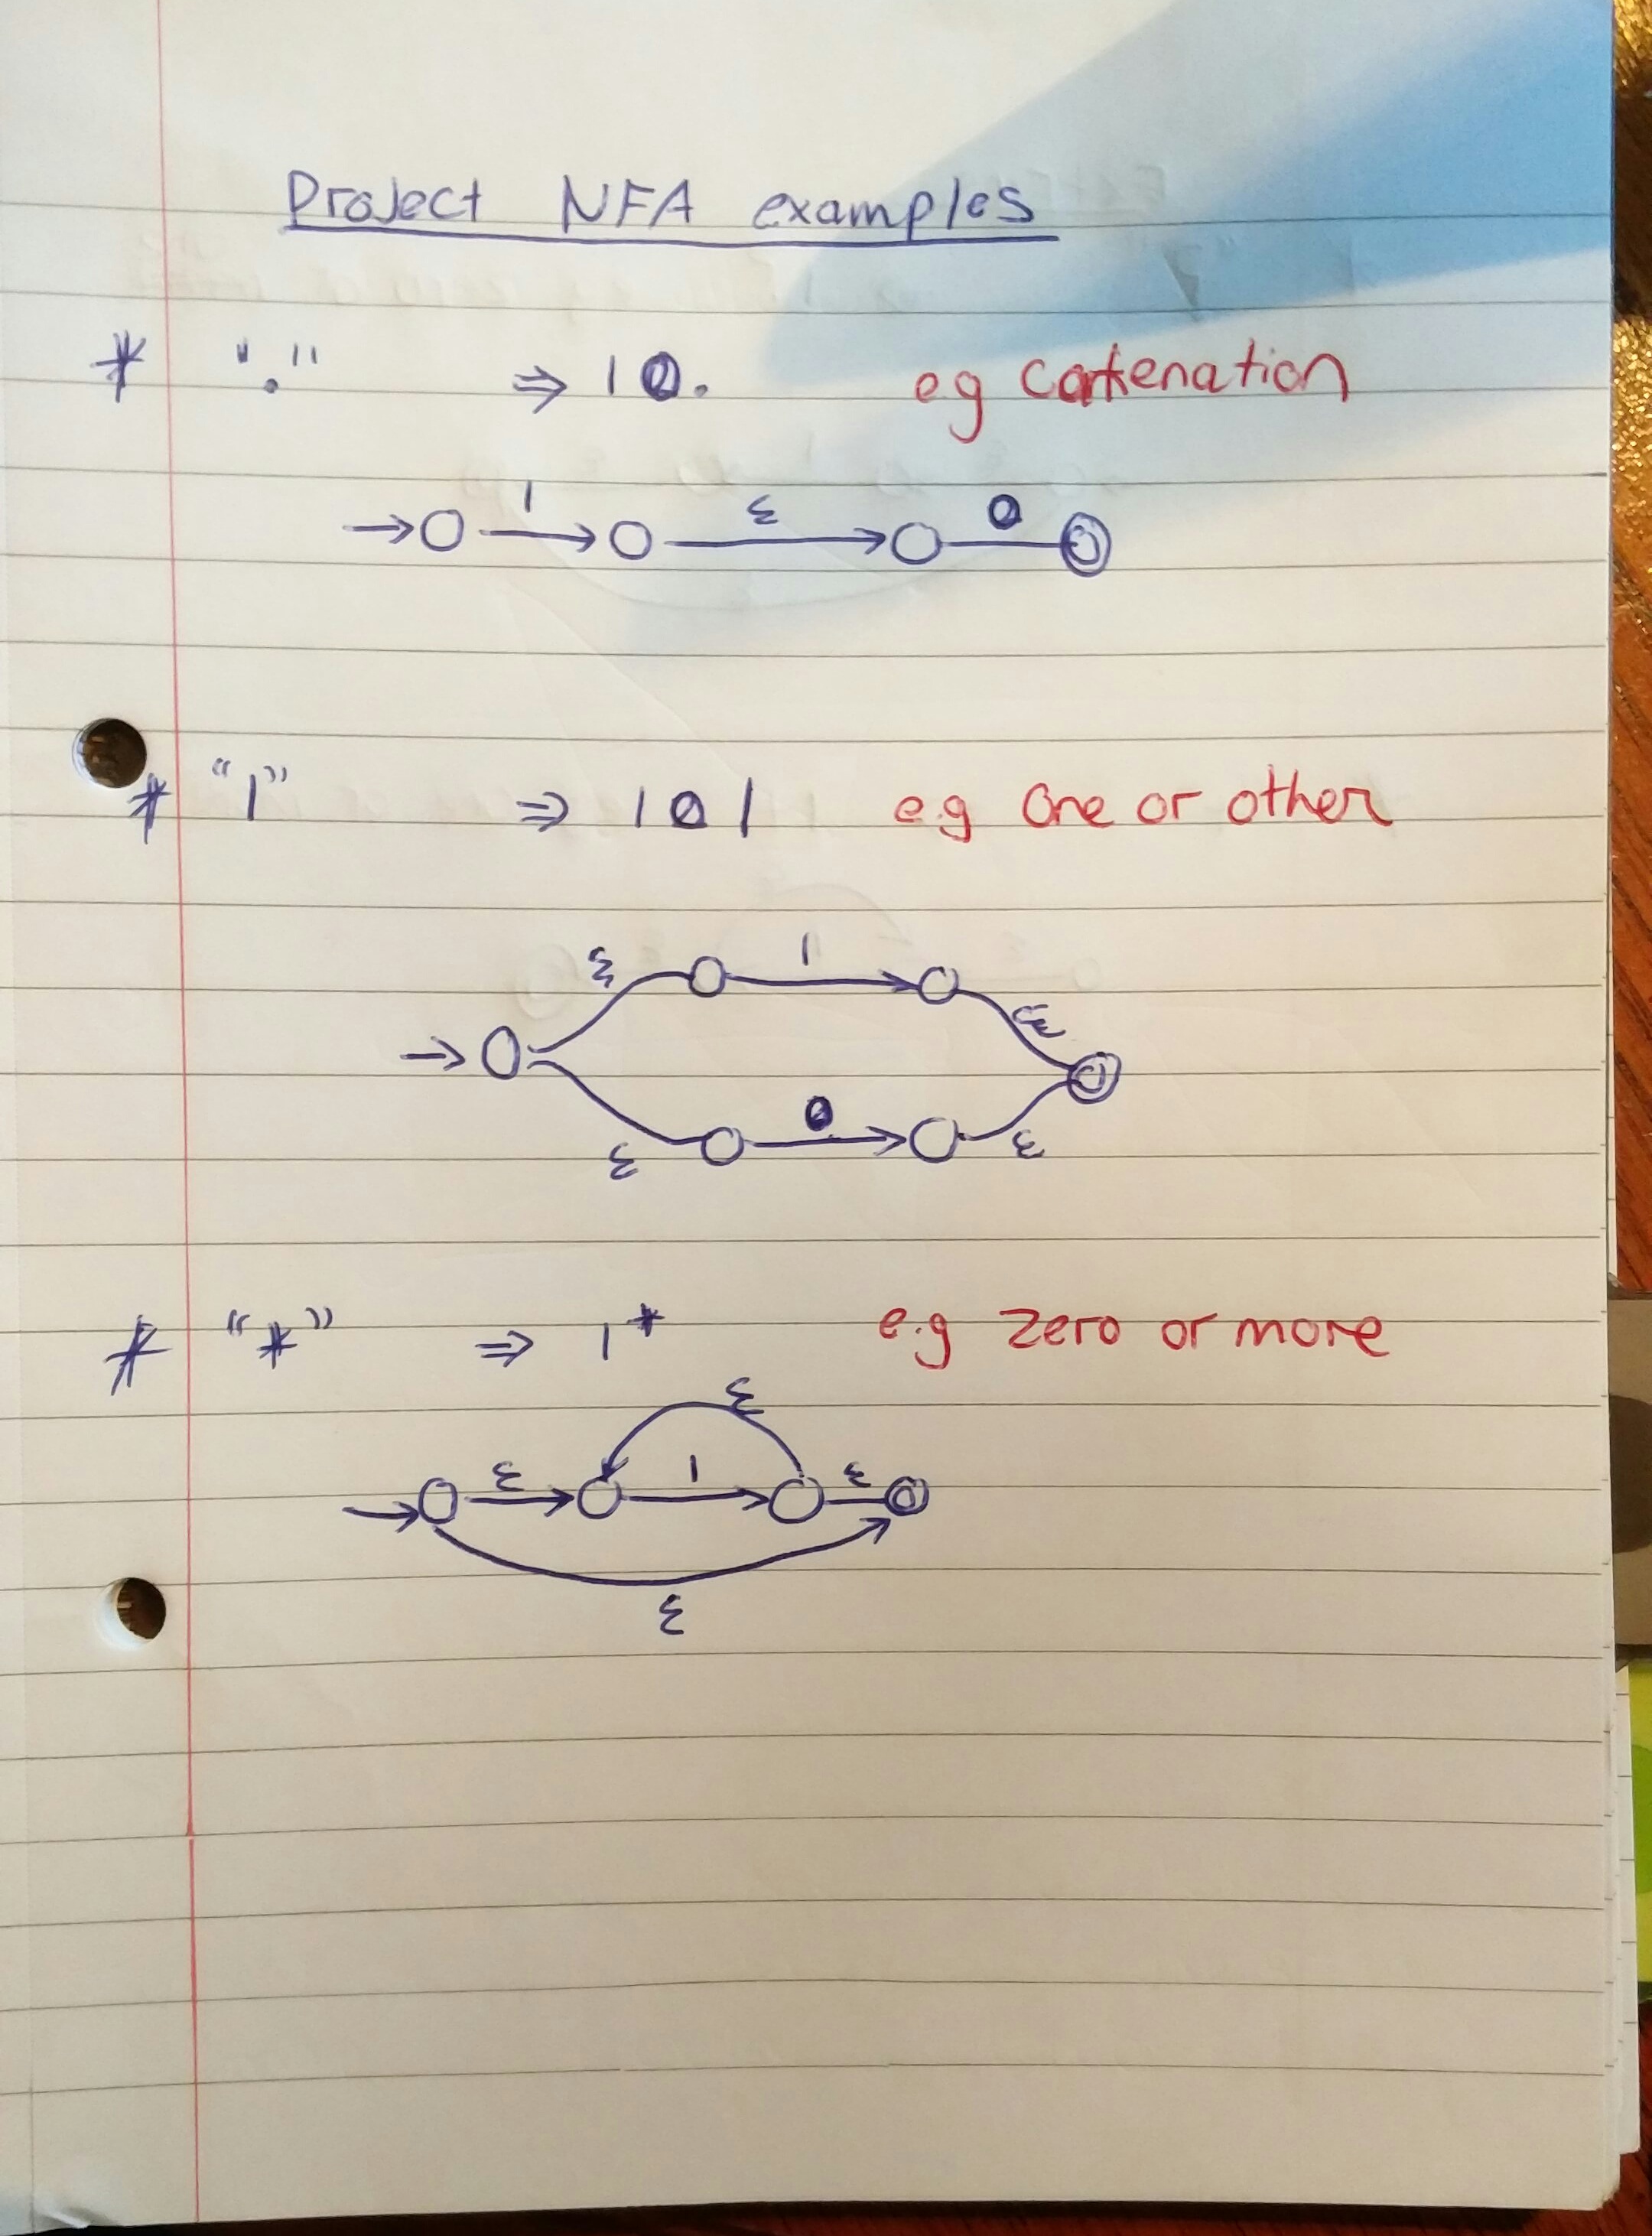 Project NFA examples
* "." ⇒ 10. eg Cartenation
1 ε 0
* "|" ⇒ 10| e.g One or other
ε 1 ε
ε 0 ε
* "*" ⇒ 1* e.g Zero or more
ε
ε 1 ε
ε